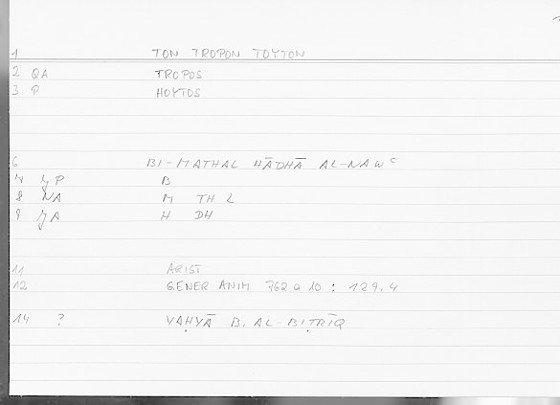 1 TON TROPON TOYTON
2 QA TROPOS
3 P HOYTOS
6 BI-MATHAL HĀDHĀ AL-NAWC
7 yP B
8 NA M TH L
9 yA H DH
11 ARIST
12 GENER ANIM 762 a 10 ; 129,4
14 ? YAḤYĀ B. AL-BIṬRĪQ